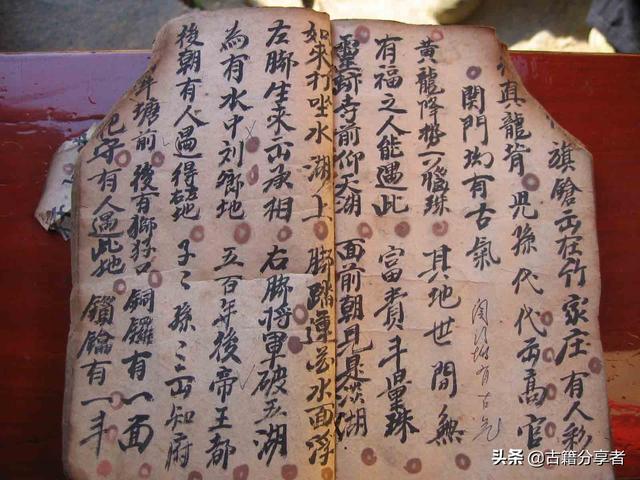 旗鎗出在竹家庄 有人彩
真龍背 児孫代代出高官
関門均有古氣
黄龍降勢一腦珠 其地世間無
有福之人能遇此 富貴斗量珠
靈 寺前仰天湖 面前朝見是淡湖
如來打坐水湖上 脚踏蓮花水面浮
左脚生來出丞相 右脚将軍破五湖
為有水中刘 地 五百年後帝王都
後朝有人遇得 地 子々孫々出知府
塘前後有獅 口 銅鑼有一面
有人遇此地 鎖鑰有一半
有古気
头条 @古籍分享者